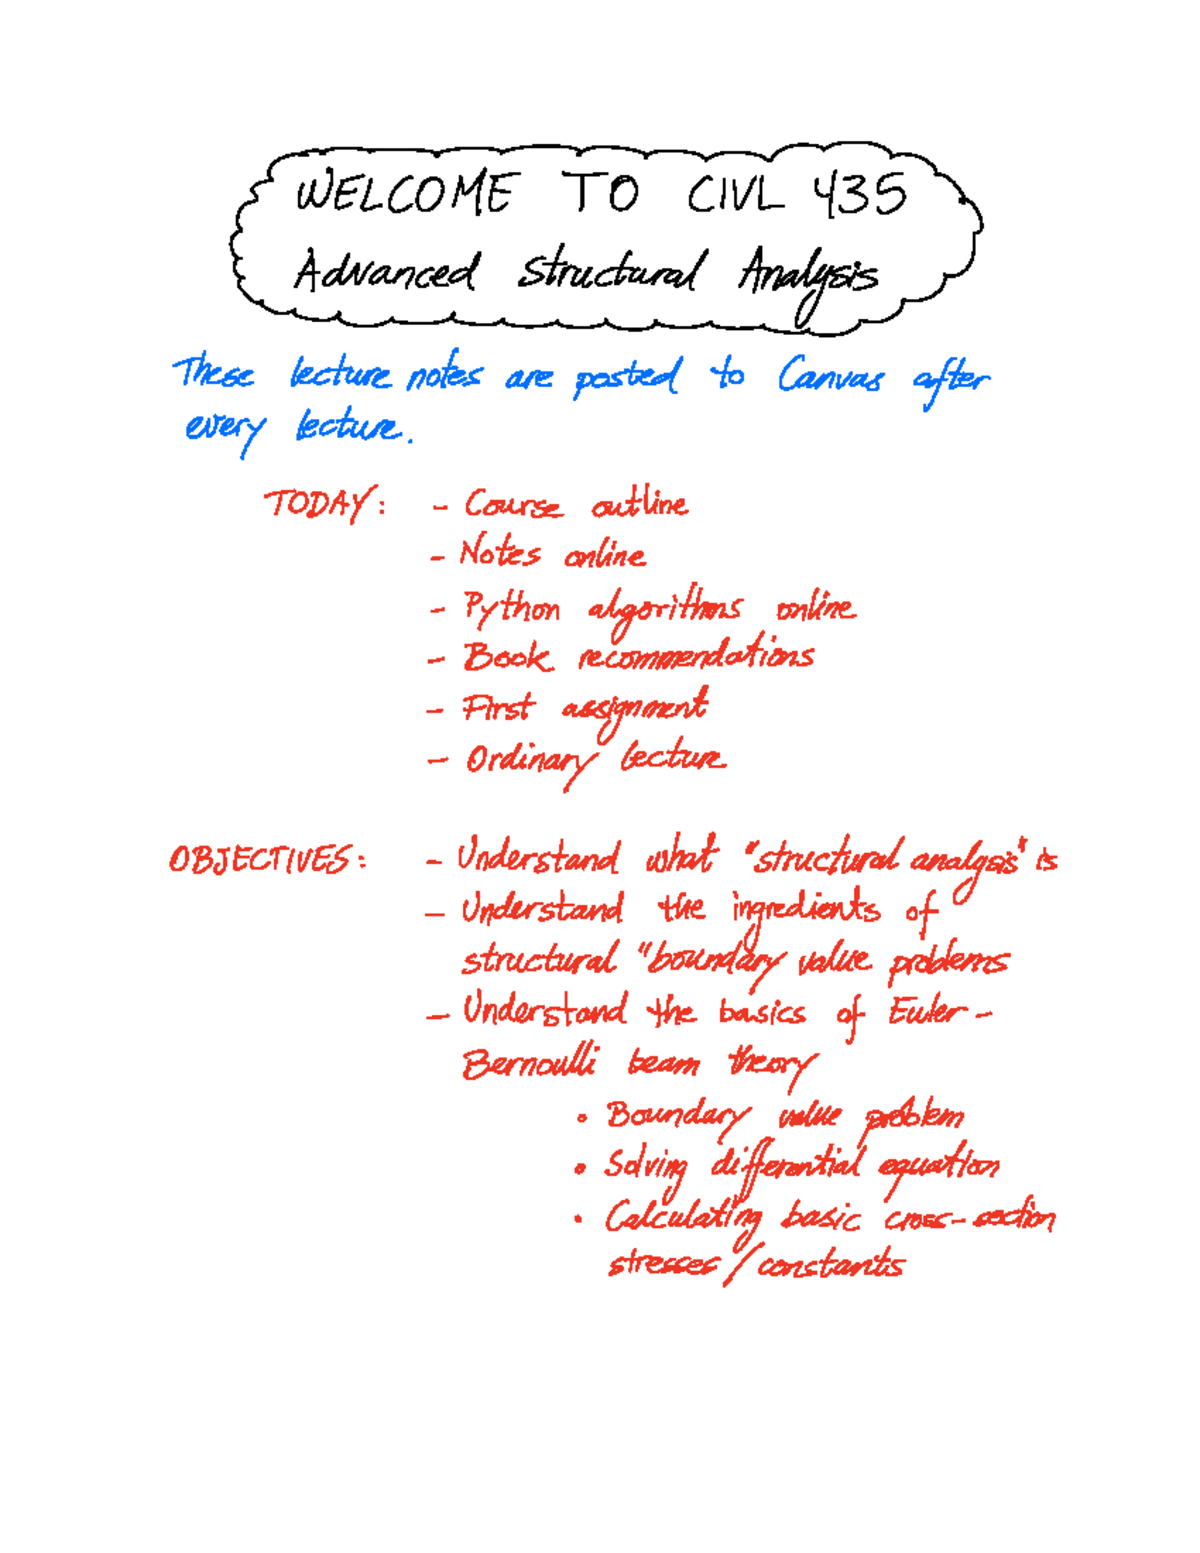 WELCOME TO CIVL 435
Advanced Structural Analysis
These lecture notes are posted to Canvas after
every lecture.
TODAY: - Course outline
- Notes online
- Python algorithms online
- Book recommendations
- First assignment
- Ordinary lecture
OBJECTIVES: - Understand what "structural analysis" is
- Understand the ingredients of
structural "boundary value problems
- Understand the basics of Euler-
Bernoulli beam theory
• Boundary value problem
• Solving differential equation
• Calculating basic cross-section
stresses/constants